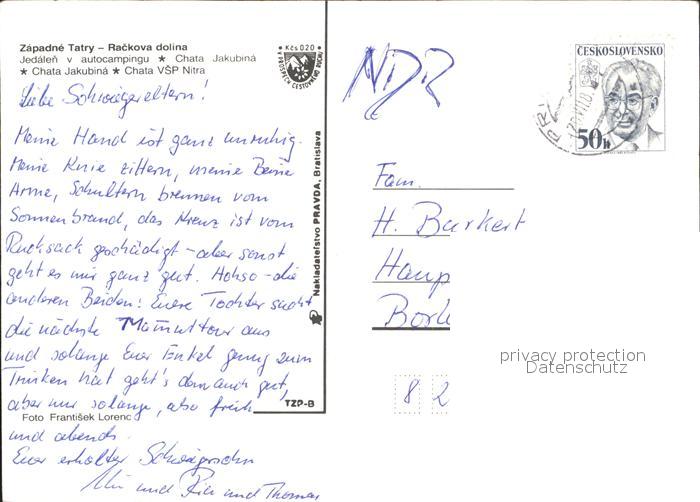 Západné Tatry – Račkova dolina
Jedáleň v autocampingu ★ Chata Jakubiná
★ Chata Jakubiná ★ Chata VŠP Nitra
Kčs 0,20
V PROSPECH CESTOVNÉHO RUCHU
Liebe Schwiegereltern!
Meine Hand ist ganz unruhig.
Meine Knie zittern, meine Beine
Arme, Schultern brennen vom
Sonnenbrand, das Kreuz ist vom
Rucksack geschädigt – aber sonst
geht es mir ganz gut. – die
anderen Beiden: Eure Tochter sucht
die nächste Mammuttour aus
und solange Euer Enkel genug zum
Trinken hat geht's dem auch gut,
aber nur solange, also früh
und abends.
Euer erholter Schwiegersohn
und und Thomas
Foto František Lorenc
TZP-B
Nakladateľstvo PRAVDA, Bratislava
NDR
ČESKOSLOVENSKO
50h
Fam.
H. Burkert
Haup
Bork
8 2
privacy protection
Datenschutz